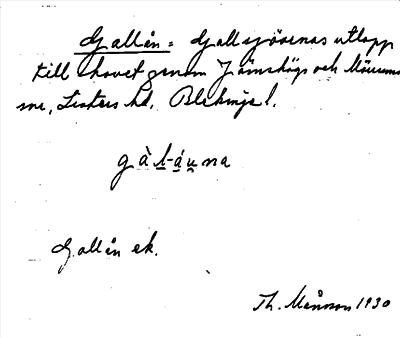 Gallån = Gallsjöarnas utlopp
till havet genom Jämshögs och Mörrums
snr, Listers hd, Blekinge l.
gàlá̱u̯na
Gallån ek.
Th. Månsson 1930